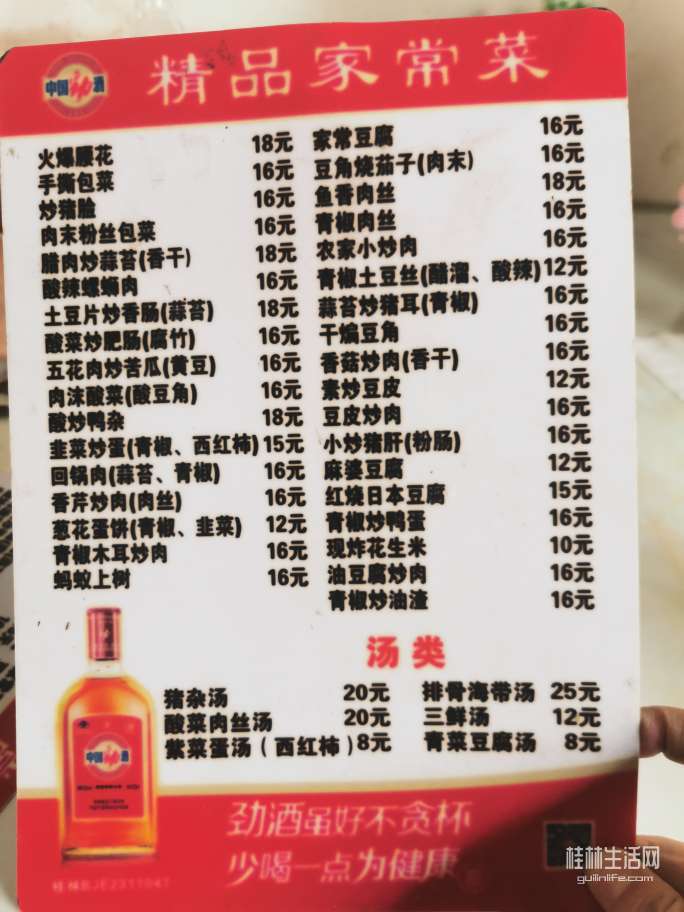 中国劲酒
精品家常菜
火爆腰花 18元
手撕包菜 16元
炒猪脸 16元
肉末粉丝包菜 16元
腊肉炒蒜苔(香干) 18元
酸辣螺蛳肉 16元
土豆片炒香肠(蒜苔) 18元
酸菜炒肥肠(腐竹) 16元
五花肉炒苦瓜(黄豆) 16元
肉沫酸菜(酸豆角) 16元
酸炒鸭杂 18元
韭菜炒蛋(青椒、西红柿) 15元
回锅肉(蒜苔、青椒) 16元
香芹炒肉(肉丝) 16元
葱花蛋饼(青椒、韭菜) 12元
青椒木耳炒肉 16元
蚂蚁上树 16元
家常豆腐 16元
豆角烧茄子(肉末) 16元
鱼香肉丝 18元
青椒肉丝 16元
农家小炒肉 16元
青椒土豆丝(醋溜、酸辣) 12元
蒜苔炒猪耳(青椒) 16元
干煸豆角 16元
香菇炒肉(香干) 16元
素炒豆皮 12元
豆皮炒肉 16元
小炒猪肝(粉肠) 16元
麻婆豆腐 12元
红烧日本豆腐 15元
青椒炒鸭蛋 16元
现炸花生米 10元
油豆腐炒肉 16元
青椒炒油渣 16元
汤类
猪杂汤 20元
酸菜肉丝汤 20元
紫菜蛋汤（西红柿）8元
排骨海带汤 25元
三鲜汤 12元
青菜豆腐汤 8元
中国劲酒
劲酒虽好不贪杯
少喝一点为健康
桂林生活网
guilinlife.com